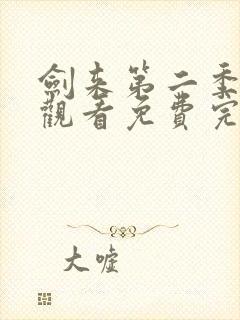 劍来第二季
觀看免費完
大嘘